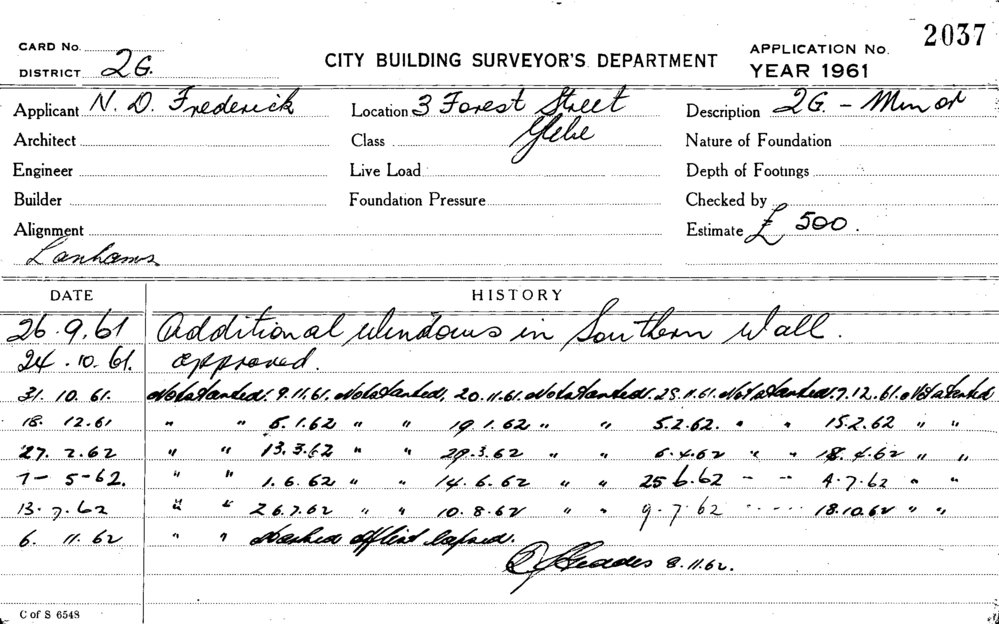 2037
CARD No.
DISTRICT 2G.
CITY BUILDING SURVEYOR'S DEPARTMENT
APPLICATION No.
YEAR 1961
Applicant N. D. Frederick Location 3 Forest Street Description 2G. - Minor
Architect Class Glebe Nature of Foundation
Engineer Live Load Depth of Footings
Builder Foundation Pressure Checked by
Alignment Estimate £ 500.
Lanhams
DATE HISTORY
26.9.61 Additional Windows in Southern Wall.
24.10.61. approved.
31.10.61. Not started. 9.11.61. Not started. 20.11.61. Not started. 29.11.61. Not started. 7.12.61. Not started
18.12.61 " " 5.1.62 " " 19.1.62 " " 5.2.62. " " 15.2.62 " "
27.2.62 " " 13.3.62 " " 29.3.62 " " 6.4.62 " " 18.4.62 " "
7-5-62. " " 1.6.62 " " 14.6.62 " " 25.6.62 " " 4.7.62 " "
13.7.62 " " 26.7.62 " " 10.8.62 " " 9.7.62 " " 18.10.62 " "
6.11.62 " " Marked off list lapsed.
Geddes 8.11.62.
C of S 6548